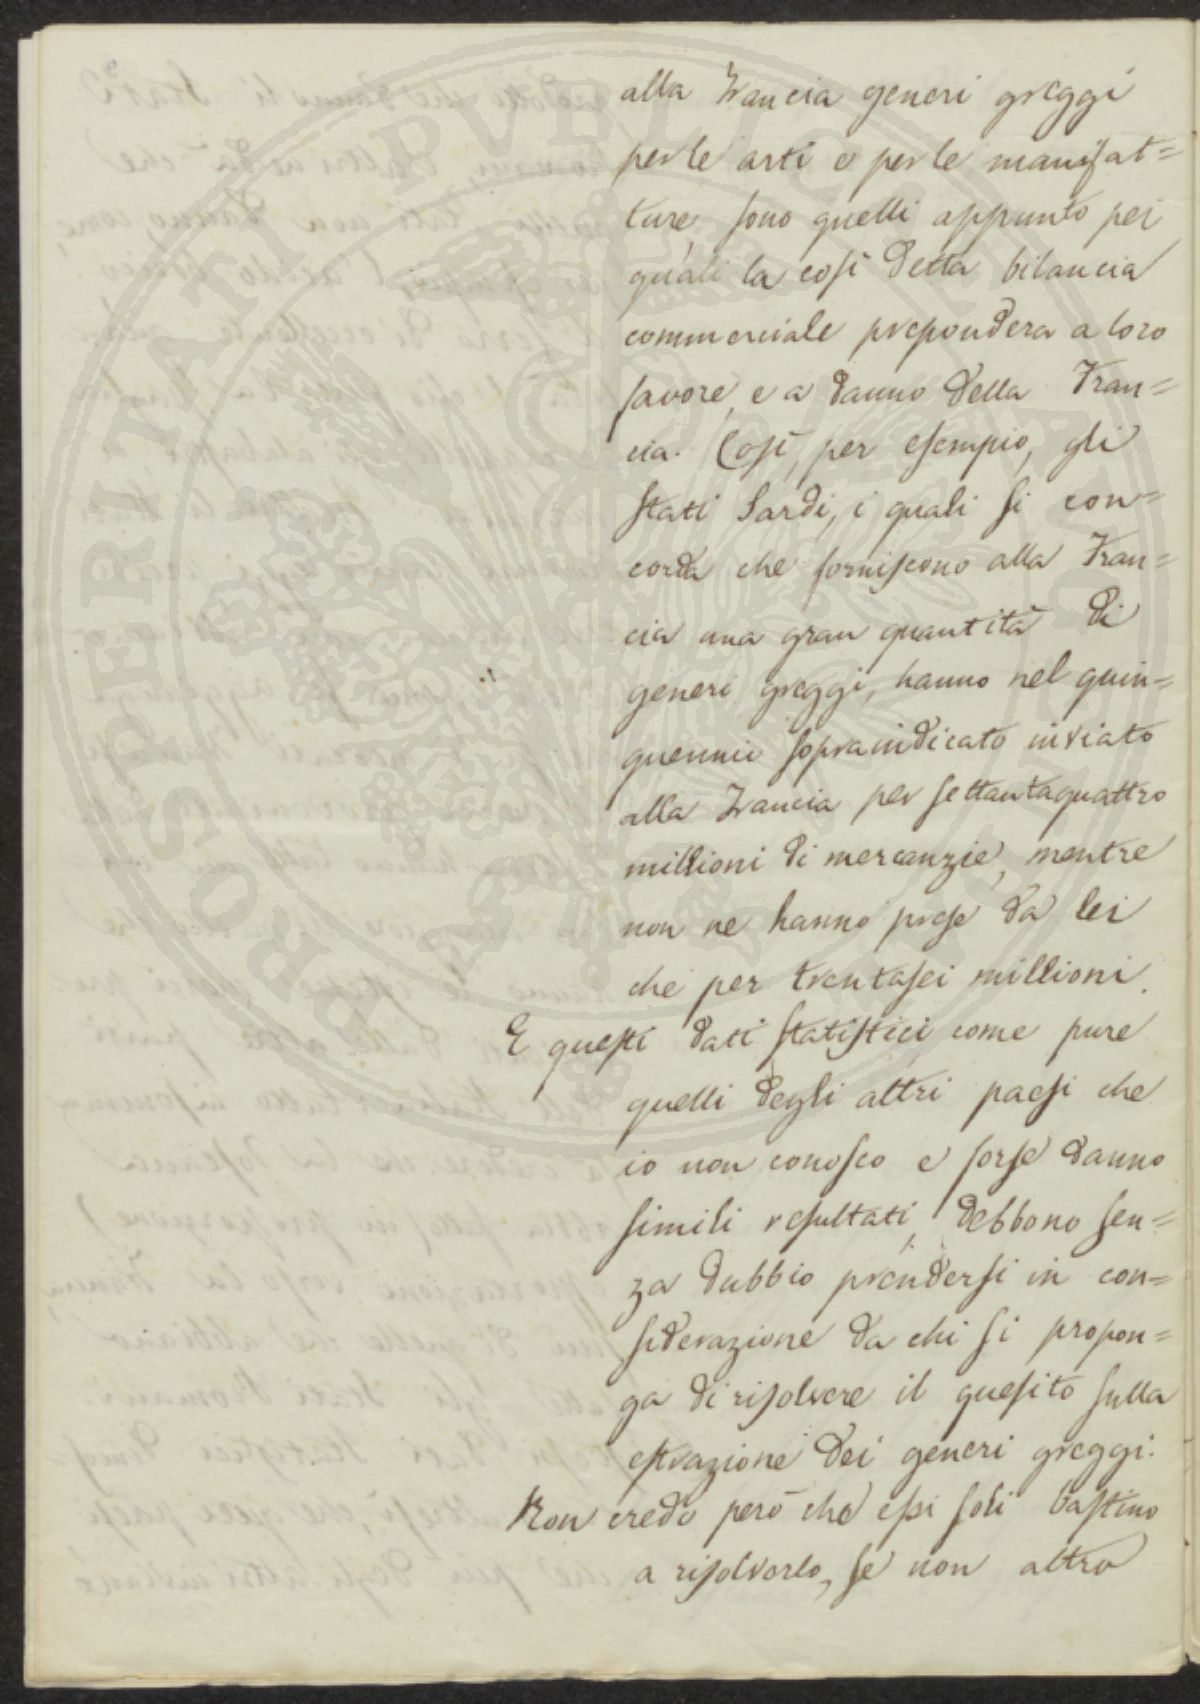 alla Francia generi greggi
per le arti e per le manifat=
ture, sono quelli appunto pei
quali la così detta bilancia
commerciale prepondera a loro
favore, e a danno della Fran=
cia. Così, per esempio, gli
Stati Sardi, i quali si con=
corda che forniscono alla Fran=
cia una gran quantità di
generi greggi, hanno nel quin=
quennio sopraindicato inviato
alla Francia per settantaquattro
millioni di mercanzie, mentre
non ne hanno prese da lei
che per trentasei millioni.
E questi dati statistici come pure
quelli degli altri paesi che
io non conosco e forse danno
simili resultati, debbono sen=
za dubbio prendersi in con=
siderazione da chi si propon=
ga di risolvere il quesito sulla
estrazione dei generi greggi.
Non credo però che essi soli bastino
a risolverlo, se non altro
PROSPERITATI PVBLICAE